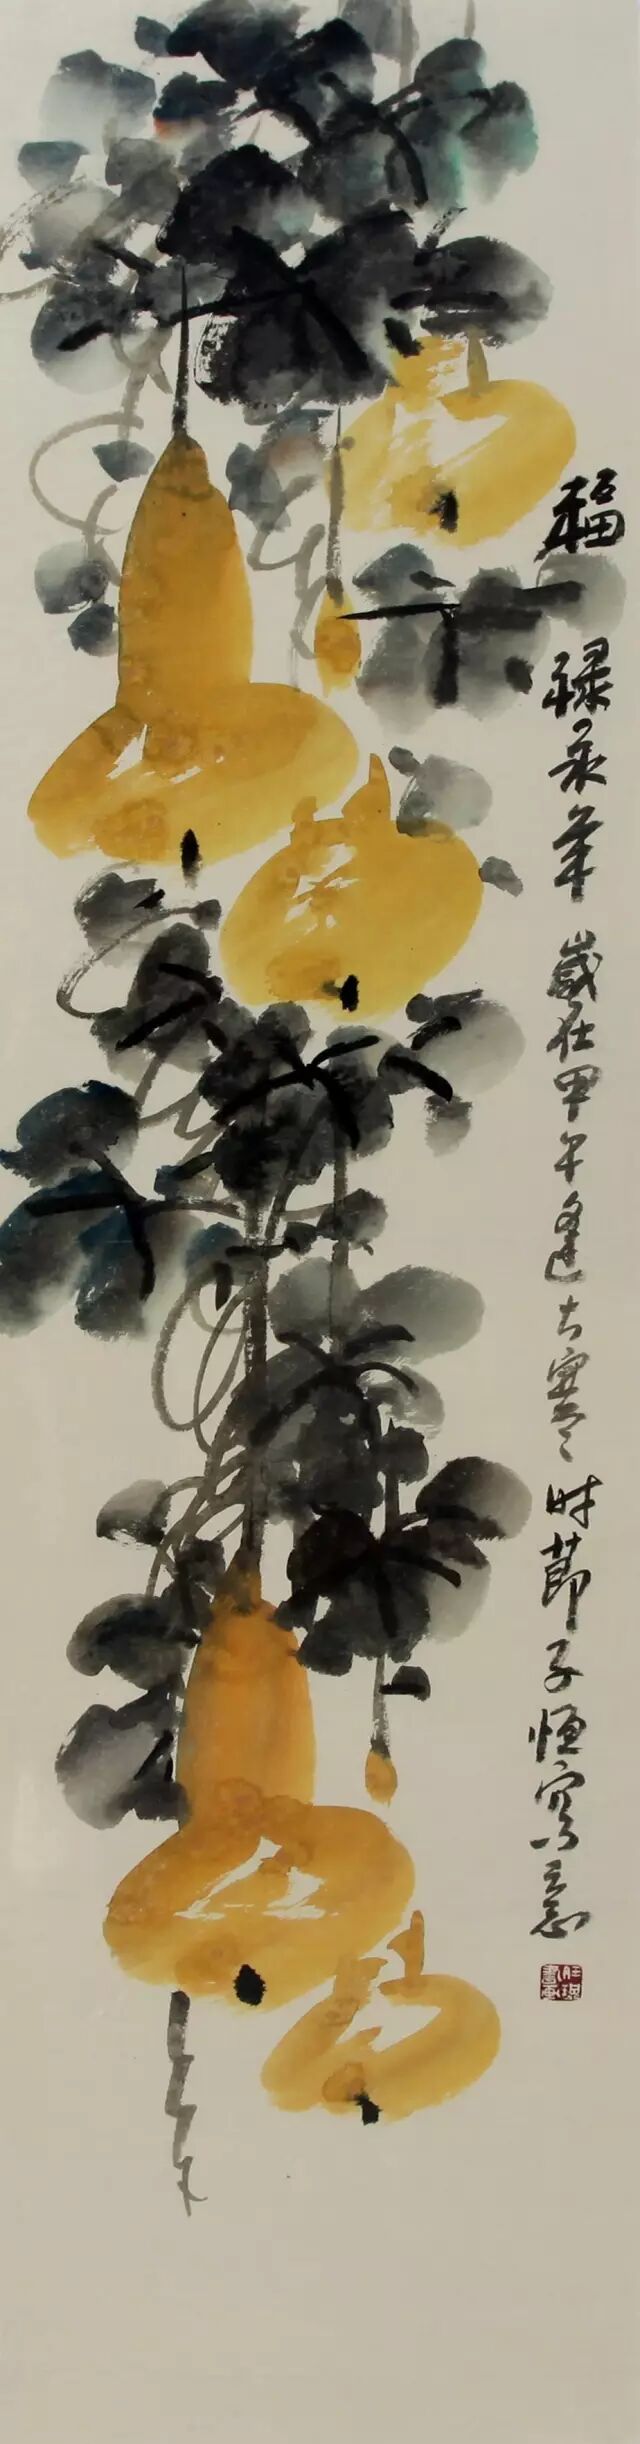 福禄永年 岁在甲午逢大寒时节子恒写意